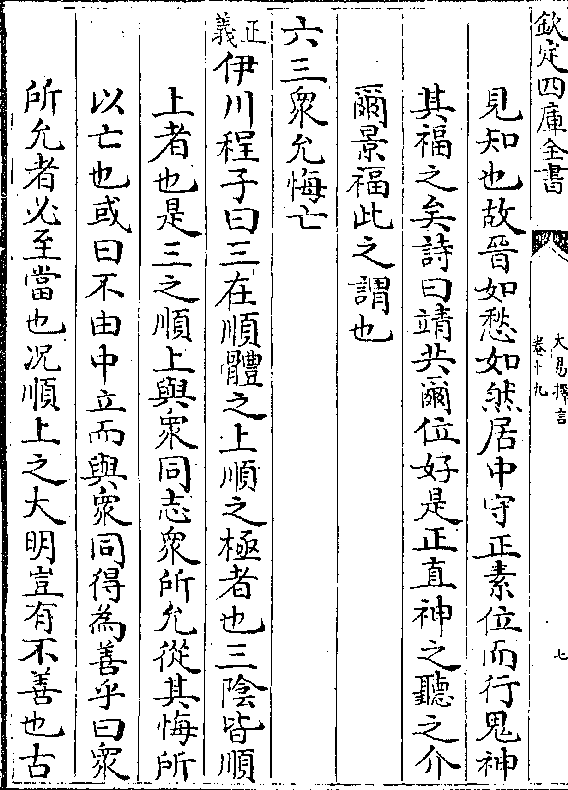 欽定四庫全書
大易擇言
卷十九
七
見知也故晉如愁如然居中守正素位而行鬼神
其福之矣詩曰靖共爾位好是正直神之聽之介
爾景福此之謂也
六三衆允悔亡
正義
伊川程子曰三在順體之上順之極者也三陰皆順
上者也是三之順上與衆同志衆所允從其悔所
以亡也或曰不由中立而與衆同得為善乎曰衆
所允者必至當也况順上之大明豈有不善也古